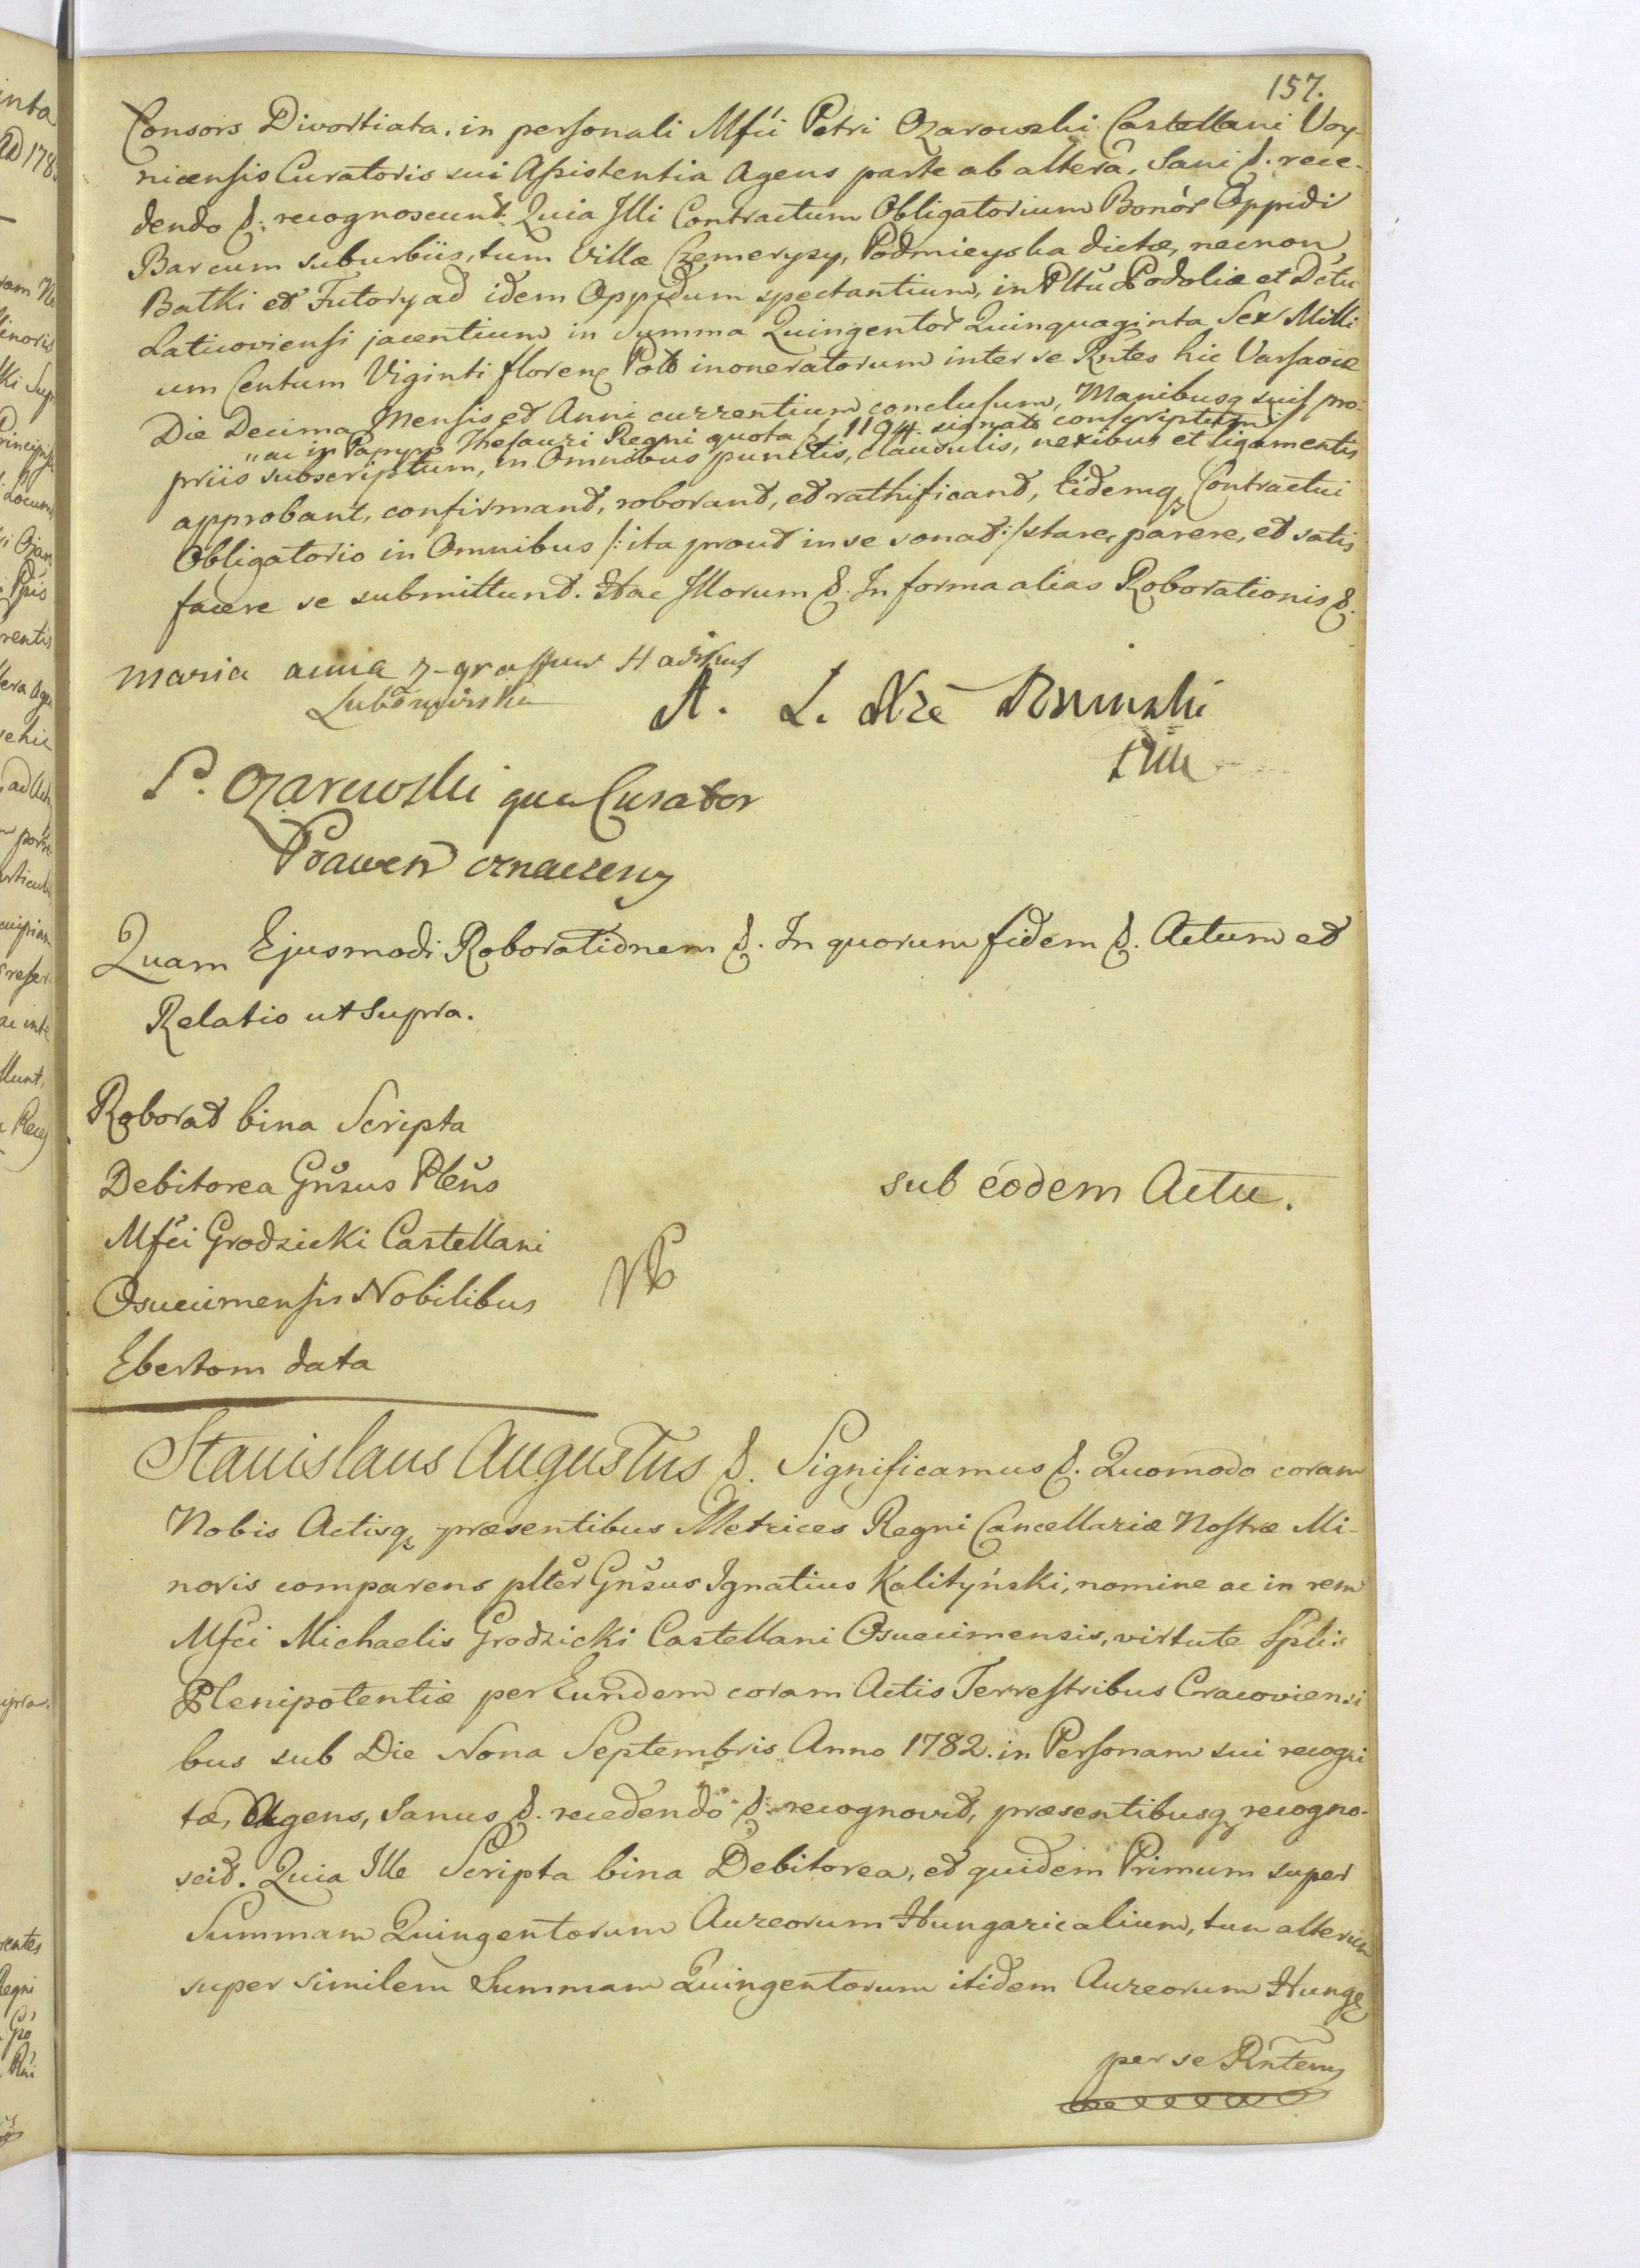 157.
Consors Divortiata, in personali Mfci Petri Ożarowski Castellani Voy-
nicensis Curatoris sui Assistentia Agens parte ab alterâ, Sani &. rece-
dendo &: recognoscunt. Quia Illi Contractum Obligatorium Bonor Oppidi
Bar cum suburbiis, tum Villæ Czemerysy, Podmieyska dictæ, necnon
Batki et Tutory ad idem Oppidum spectantium, in Pltu Podoliæ et Dctu
Laticoviensi jacentium in Summa Quingentor Quinquaginta Sex Milli
um Centum Viginti floren Pol inoneratorum inter se Rntes hic Varsaviæ
Die Decima Mensis et Anni currentium conclusum, Manibusq suis pro-
„ac in Papyro Thesauri Regni quota f 1194. signato conscriptum
priis subscriptum, in Omnibus punctis, clausulis, nexibus et ligamentis
approbant, confirmant, roborant, et rathificant, Eidemq Contractui
Obligatorio in Omnibus /: ita prout in se sonat :/ stare, parere, et satis
facere se submittunt. Hac Illorum &. In forma alias Roborationis &.
Maria anna z
Lubomirska
A. L. Xże
P. Ożarowski qua Curator
Prawem oznaczony
Quam Ejusmodi Roborationem &. In quorum fidem &. Actum et
Relatio ut Supra.
Roborat bina Scripta
Debitorea Gnsus Plens
Mfci Grodzicki Castellani
Osuecimensis Nobilibus
Ebertom data
sub eodem Actu.
Stanislaus Augustus &. Significamus &. Quomodo coram
Nobis Actisq præsentibus Metrices Regni Cancellariæ Nostræ Mi-
noris comparens plter Gnsus Ignatius Kalityński, nomine ac in rem
Mfci Michaelis Grodzicki Castellani Osuecimensis, virtute Splis
Plenipotentiæ per Eundem coram Actis Terrestribus Cracoviensi
bus sub Die Nona Septembris Anno 1782. in Personam sui recogni
tæ, Agens, Sanus &. recedendo &: recognovit, præsentibusq recogno-
scit. Quia Ille Scripta bina Debitorea, et quidem Primum super
Summam Quingentorum Aureorum Hungaricalium, tum alterum
super similem Summam Quingentorum itidem Aureorum Hung
per se Rntem